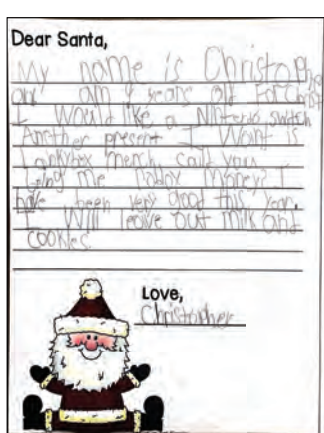 Dear Santa,
My name is Christopher
and am 9 years old For Christ
I would like a Nintendo switch
Another present I want is
Lankybox merch, could you
bring me money? I
have been very good this year.
I Will leave out milk and
cookies.
Love,
Christopher